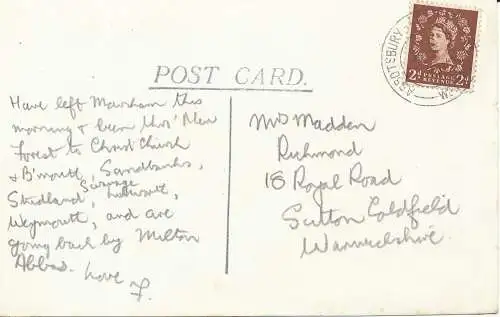 POST CARD.
Have left Mawnham this
morning & been thro' New
Forest to Christchurch
& B'mouth, Sandbanks,
Studland, Swanage, Lulworth,
Weymouth, and are
going back by Milton
Abbas. Love
Mrs Madden
Richmond
18 Royal Road
Sutton Coldfield
Warwickshire.
ABBOTSBURY
2d POSTAGE REVENUE 2d